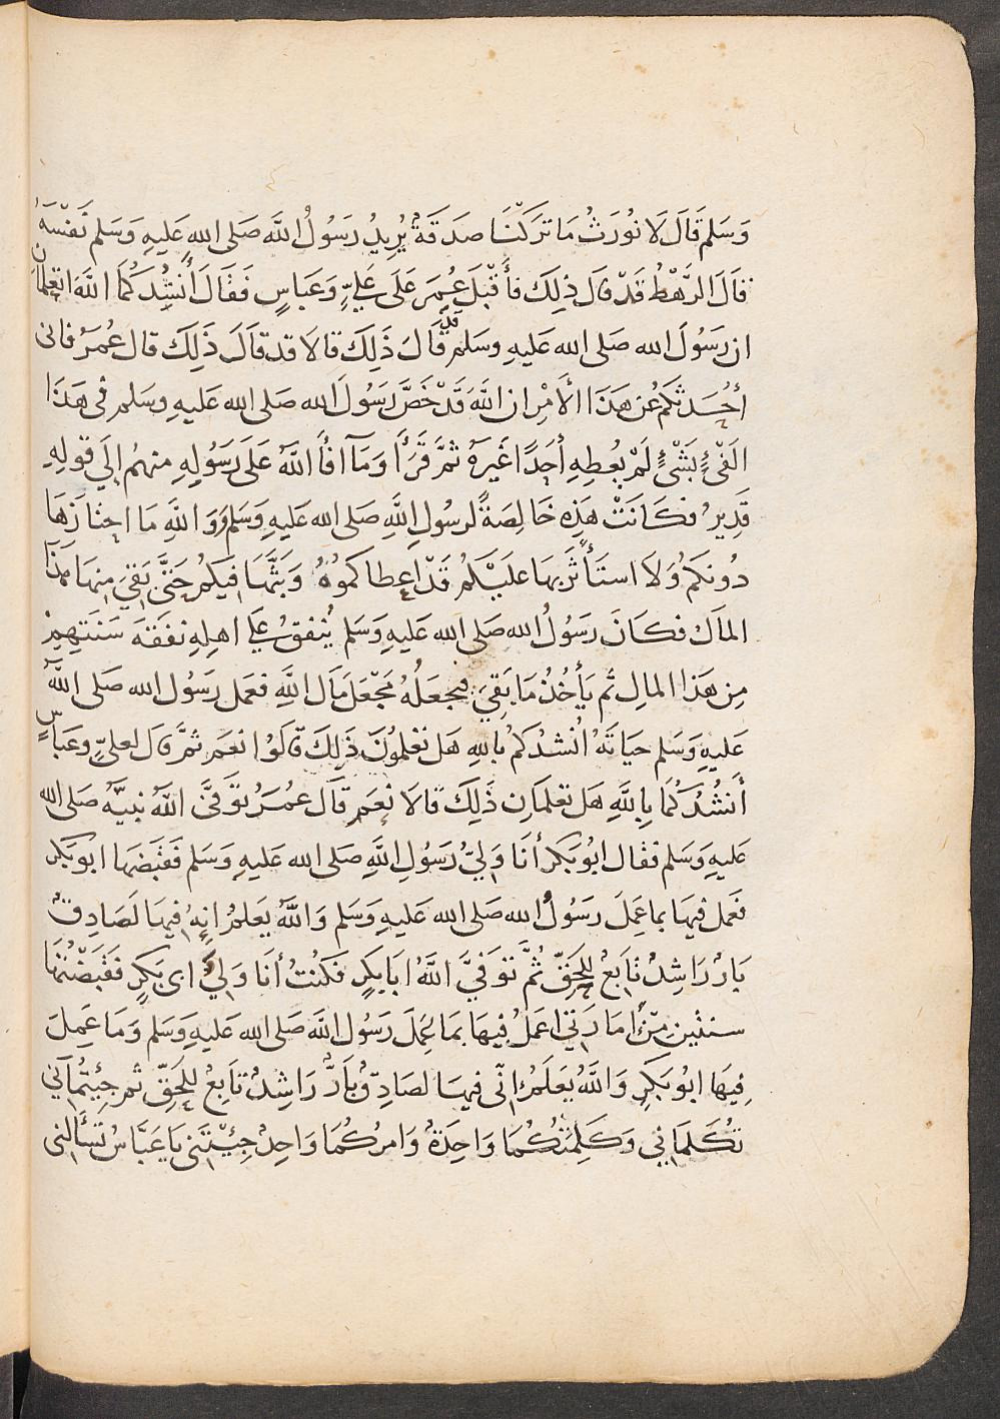 وَسَلم قَالَ لَا نُورَثُ مَا تَرَكْنَا صَدَقَةٌ يُرِيدُ رَسُولُ اللَّهِ صَلى اللهِ عَلَيهِ وَسَلم نَفْسَهُ
قَالَ الرَّهْطُ قَدْ قَالَ ذلِكَ فأَقْبَلَ عُمَرَ عَلَى عَلِيٍّ وَعَبَاسٍ فَقَالَ أَنشُدُكُمَا اللَّهَ اتعلمَانِ
ان رَسُولَ الله صَلى الله عَليهِ وسَلم قَدْ قَالَ ذَلِكَ قالَا قد قاَلَ ذَلِكَ قال عُمَرُ فانى
أُحَدِثكُمْ عَن هَذَا الأَمْرِ ان اللَّهَ قَدْ خَصَّ رَسُولَ الله صَلى الله عَليهِ وسَلم فى هَذَا
الَفْئِ بشَىْءٍ لَمْ يُعْطِهِ أحَدًا غَيرَهُ ثمَّ قَرَأَ وَمَآ افَأَ اللَّهُ عَلَى رَسُوْلِهِ مِنهُم إلَى قولِهِ
قَدِيرٌ فكَانَتْ هَذِهِ خَالِصَةً لرسُولِ اللَّهِ صَلى الله عَليهِ وَسَلم وَوَاللَّهِ مَا احتَازَهَا
دُونَكُم وَلَا استَأْثَرَ بهَا عَلَيْكُمْ قَدْ اعطاكمُوهُ وَبَثَّهَا فِيكُم حَتَّى بَقِىَ مِنهَا هَذَا
المَالُ فكَانَ رَسُولُ اللهِ صَلى الله عَليهِ وَسَلم يُنْفِقُ عَلَى اهلِهِ نفَقَةَ سَنَتِهِمْ
مِن هَذَا المالِ ثم يَأْخُذُ مَا بَقِيَ فيجعَلُهُ مَجْعَلَ مَالِ اللَّهِ فعَمل رَسُول الله صَلى اللَّهُ
عَليهِ وَسَلم حيَاتَهُ أنشُدُكُم باللهِ هَل تعْلمُونَ ذَلِكَ قالَوْا نعَم ثمَّ قال لعلىٍّ وعَبَاسٍ
أَنشُدُكُمَا بِاللَّهِ هَل تعلمَانِ ذَلِكَ قالَا نعَم قَال عمُرُ توَفىَّ اللَّهُ نبيَّهُ صَلى الله
عَليهِ وَسَلم فقال ابُو بَكرٍ أنَا وَلِيُّ رَسُولِ اللَّهِ صَلى الله عَليهِ وَسَلم فَقَبَضَها ابو بَكر
فَعمل فيهَا بما عَمِلَ رَسُولُ الله صَلى الله عَليهِ وَسَلم وَاللَّهُ يَعلمُ انهُ فيهَا لَصَادِقٌ
بَارٌ رَاشِدٌ تابعٌ للحَقّ ثُمَّ توَفىَّ اللَّهُ ابَا بكرٍ فَكنتُ أنَا وَلِيَّ ابى بَكرٍ فقَبَضْتُهَا
سنتَينِ مِنْ أمَارَتِي اعمَلُ فِيهَا بمَا عَمِلَ رَسُولُ اللَّهِ صَلى الله عَليهِ وَسَلم وَمَا عَمِلَ
فِيهَا ابُو بَكرٍ وَاللَّهُ يَعلَمُ انّى فيهَا لصَادِقٌ بَارٌّ رَاشِدٌ تابِعٌ للحَقّ ثم جِئتُمَانِي
تُكَلمَانِي وَكَلِمَتُكُمَا وَاحِدَةٌ وَامرُكُمَا وَاحِدٌ جِئْتَنِى يَا عَبَّاسُ تَسْأَلنى